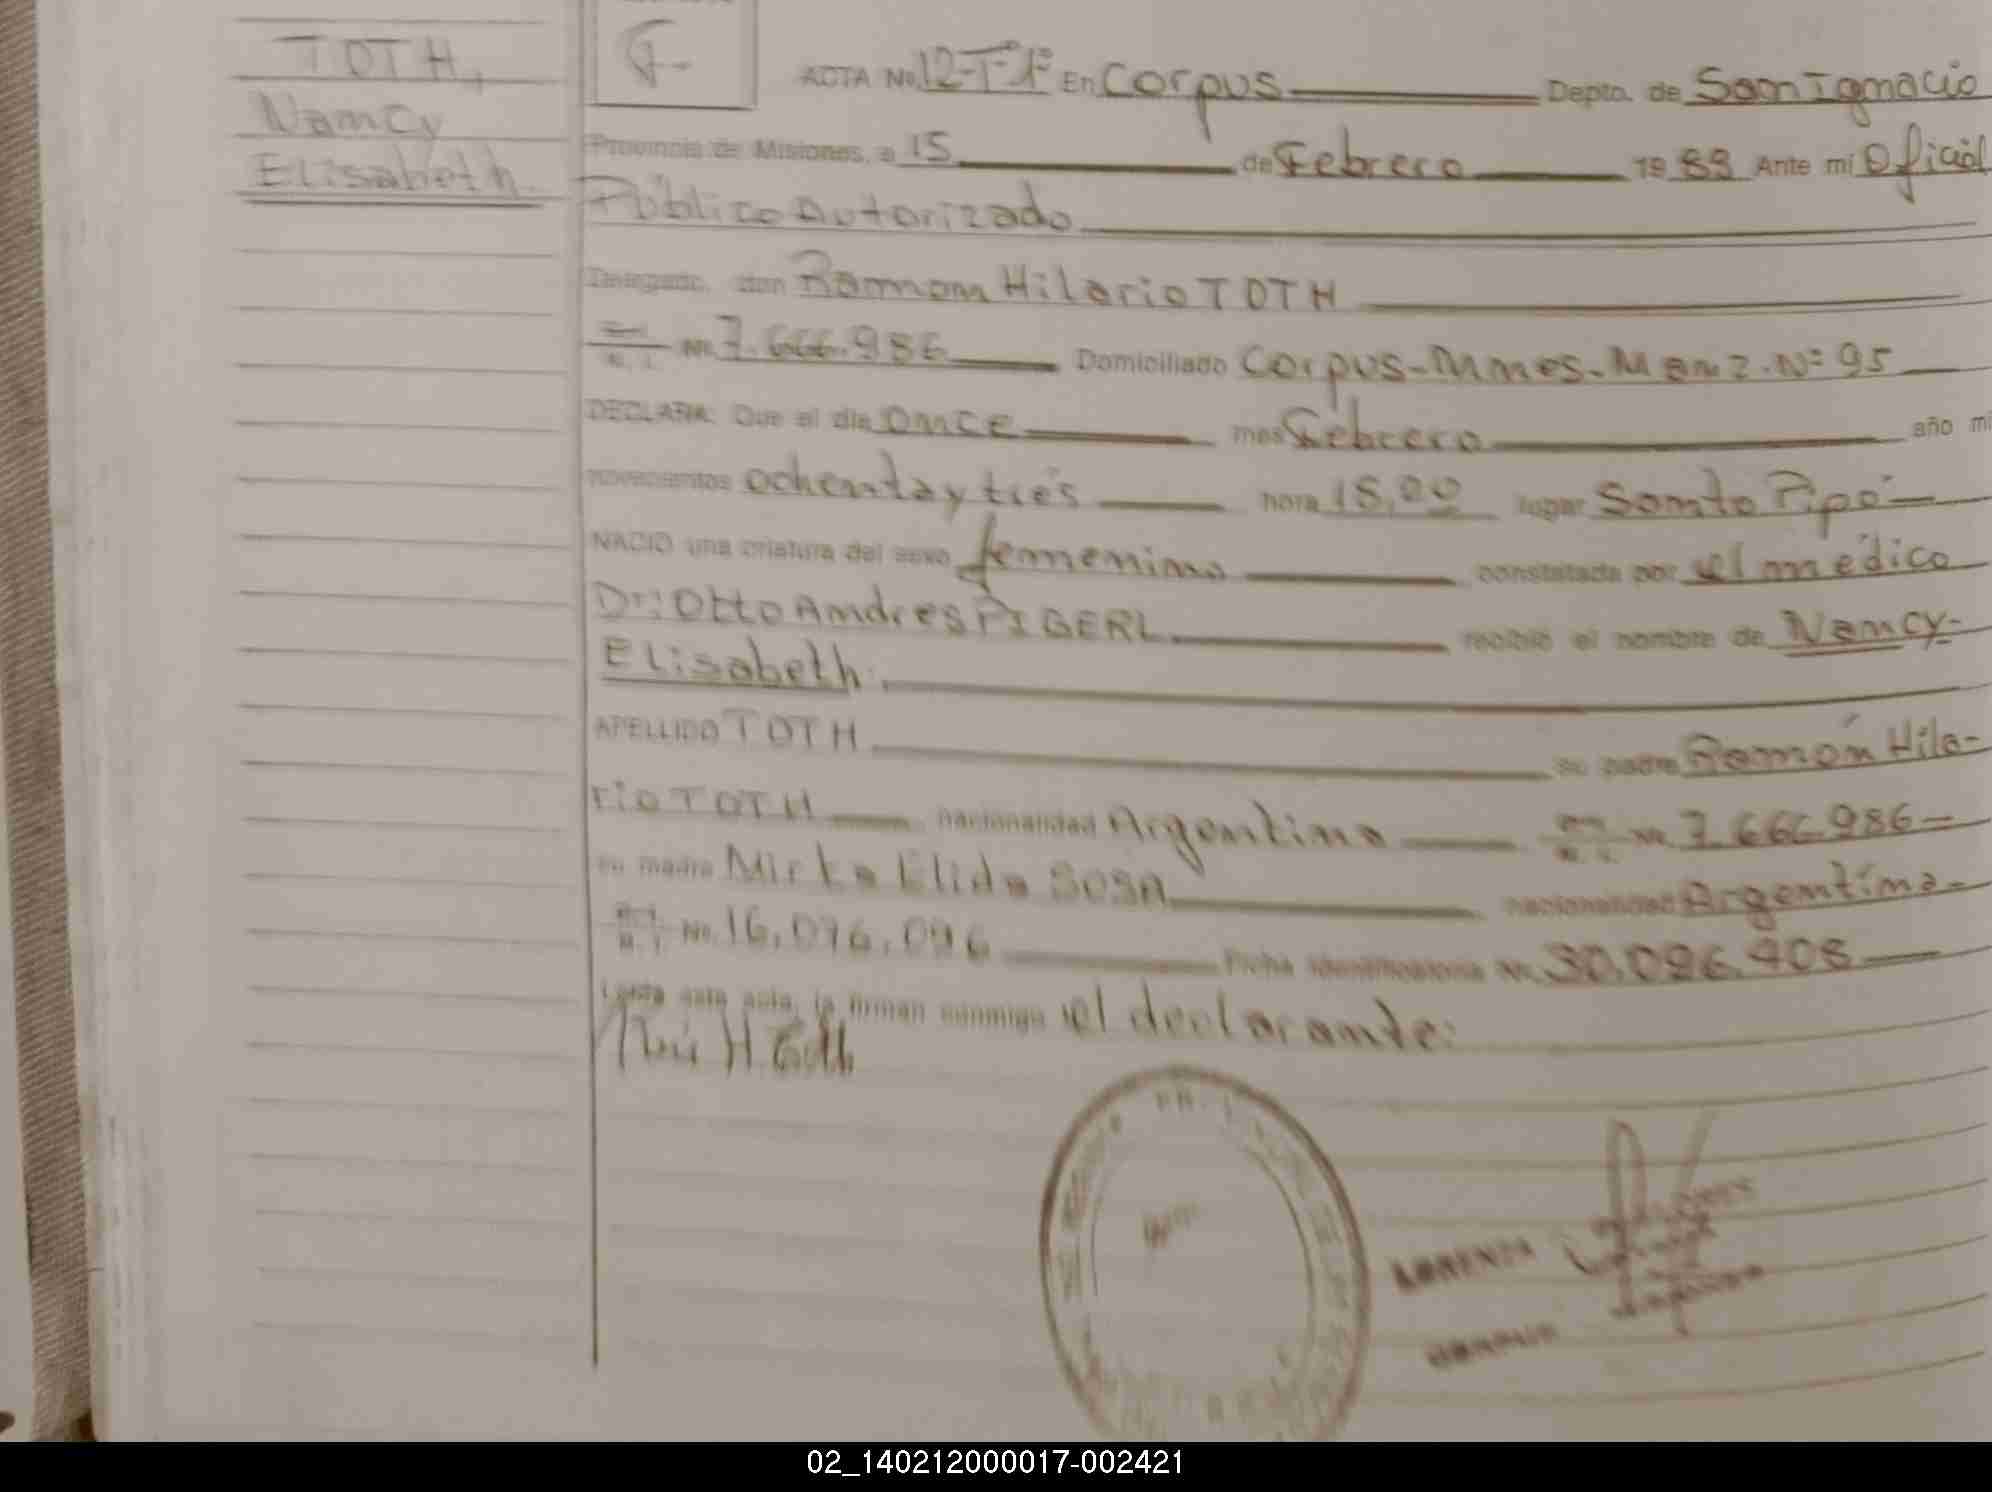 TOTH,
Nancy
Elisabeth.
F-
ACTA No. 12-T°1° En Corpus Depto. de San Ignacio
Provincia de Misiones, a 15 de Febrero 1983 Ante mi Oficial
Público Autorizado
Delegado, don Ramon Hilario TOTH
M. I. No. 7.666.986 Domiciliado Corpus-Mnes-Manz-Nº 95
DECLARA: Que el día once mes Febrero año mi
novecientos ochenta y tres hora 18,00 lugar Santo Pipó
NACIO una criatura del sexo femenino constatada por el médico
Dr: Otto Andres PIGERL recibió el nombre de Nancy-
Elisabeth.
APELLIDO TOTH su padre Ramón Hila-
rio TOTH nacionalidad Argentino M. I. No. 7.666.986-
su madre Mirta Elida SOSA nacionalidad Argentina-
M. I. No. 16.096.096 Ficha identificatoria No. 30.096.408
Leída esta acta, la firman conmigo el declarante:
02_140212000017-002421